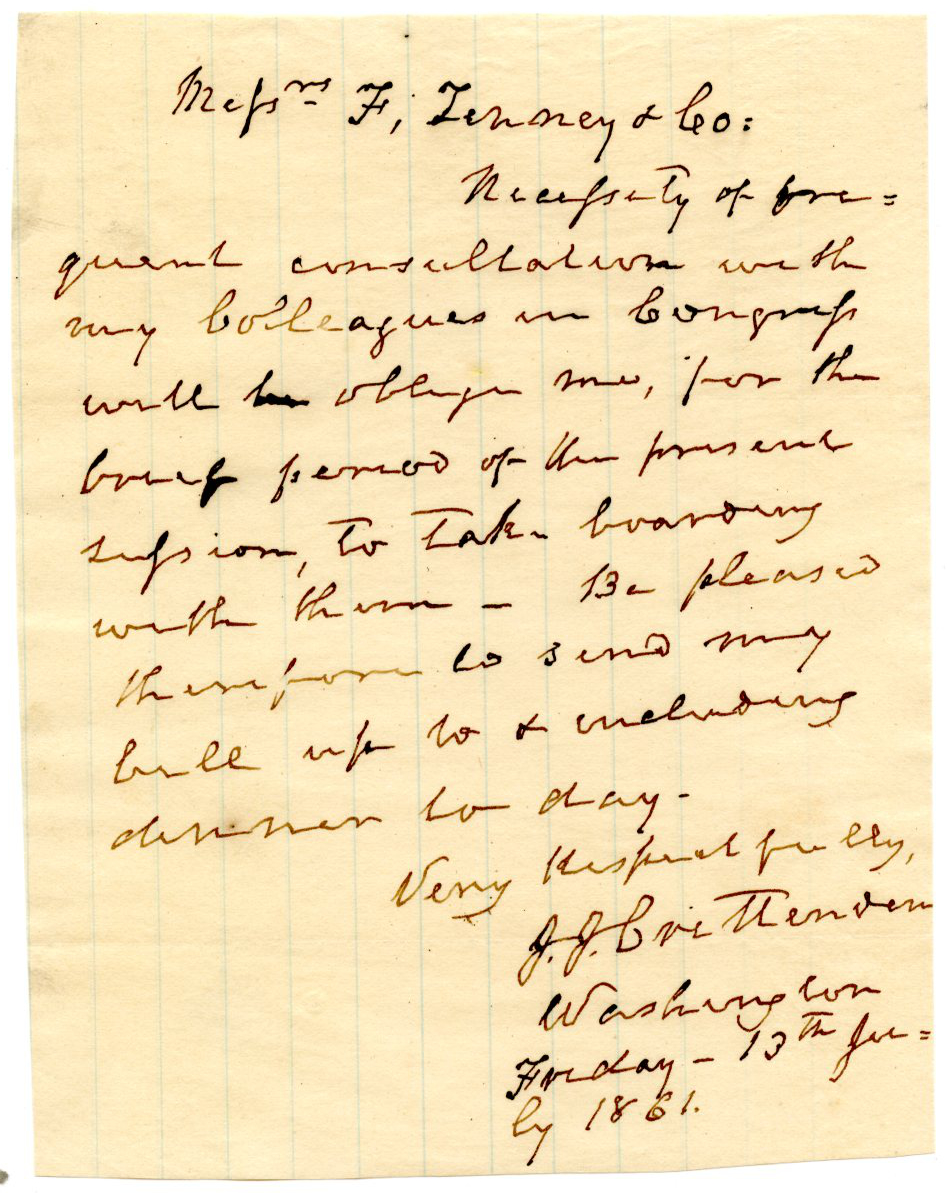 Messrs F, Tenney & Co:
Necessity of fre=
quent consultation with
my Colleagues in Congress
will oblige me, for the
brief period of the present
session, to take boarding
with them – Be pleased
therefore to send my
bill up to & including
dinner to day -
Very Respectfully,
J. J. Crittenden
Washington
Friday – 13th Ju=
ly 1861.